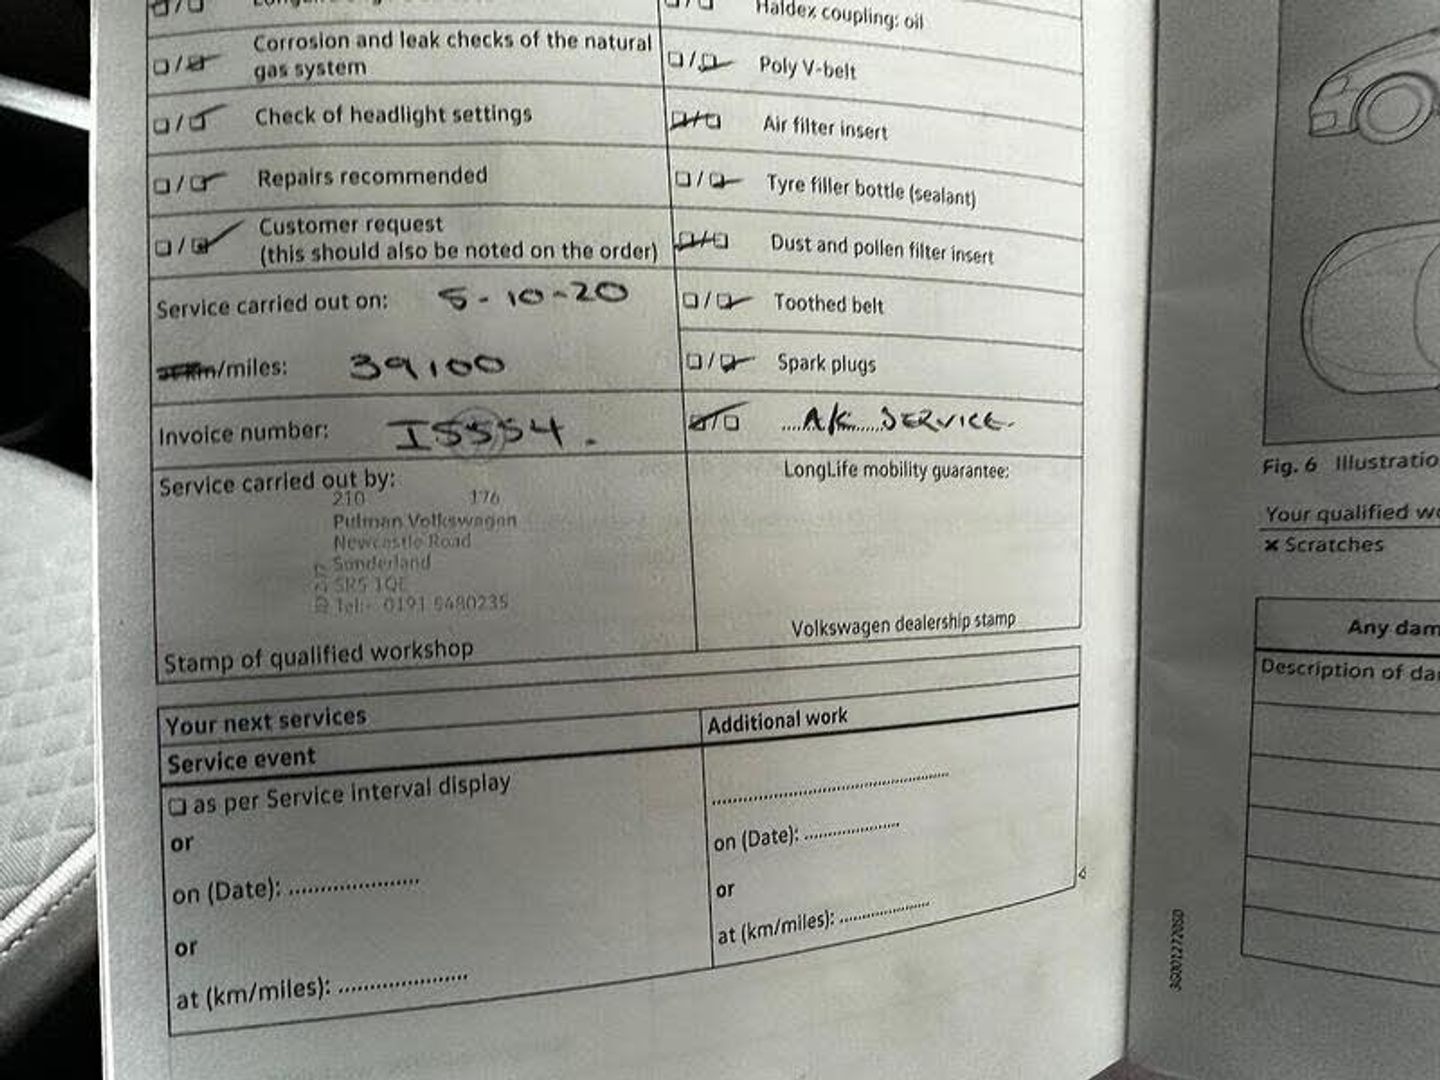 Haldex coupling: oil
Corrosion and leak checks of the natural
gas system
Poly V-belt
Check of headlight settings
Air filter insert
Repairs recommended
Tyre filler bottle (sealant)
Customer request
(this should also be noted on the order)
Dust and pollen filter insert
Service carried out on: 5-10-20
Toothed belt
km/miles: 39100
Spark plugs
Invoice number: I5554.
A/C SERVICE.
Service carried out by:
LongLife mobility guarantee:
210 176
Pulman Volkswagen
Newcastle Road
Sunderland
SR5 1QE
Tel:- 0191 5480235
Stamp of qualified workshop
Volkswagen dealership stamp
Your next services
Additional work
Service event
as per Service interval display
or
on (Date): ......................
or
at (km/miles): ......................
..................................................
on (Date): ....................
or
at (km/miles): ...................
3G0012720SD
Fig. 6 Illustratio
Your qualified wo
× Scratches
Any dam
Description of da